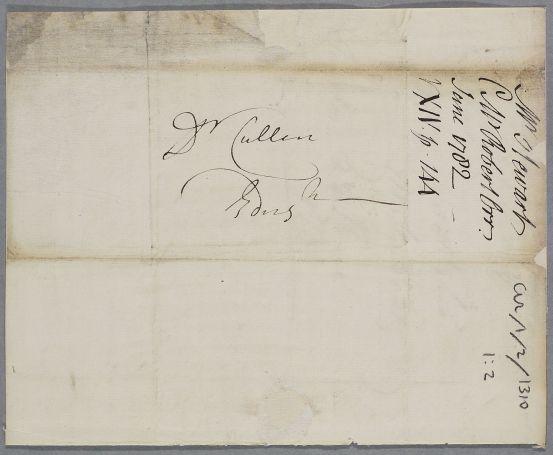 Dr Cullen
Edinr
Mr Stewart
(Mr Robert Orr.)
June 1782
XIV. p. 144
CUL/1/2/1310
1:2